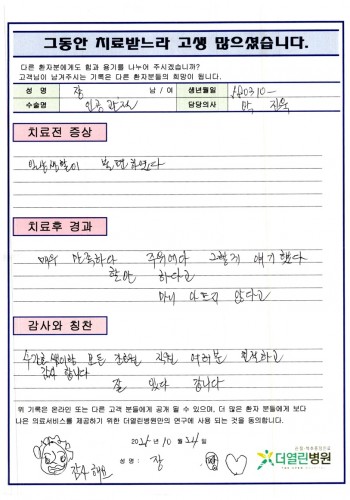 그동안 치료받느라 고생 많으셨습니다.
다른 환자분에게도 힘과 용기를 나누어 주시겠습니까?
고객님이 남겨주시는 기록은 다른 환자분들의 희망이 됩니다.
성 명 장 남 / 여 생년월일 680310-
수술명 인공관절 담당의사 박 진욱
치료전 증상
일상생활이 불편하였다
치료후 경과
매우 만족하다 주위에다 그렇게 얘기했다
할만 하다고
마니 아프지 않다고
감사와 칭찬
수간호 쌤이랑 모든 간호원 직원 여러분 친절하고
감사 합니다
잘 있다 갑니다
위 기록은 온라인 또는 다른 고객 분들에게 공개 될 수 있으며, 더 많은 환자 분들에게 보다
나은 의료서비스를 제공하기 위한 더열린병원만의 연구에 사용 되는 것을 동의합니다.
2024년 10 월 24 일
성 명 : 장
감사해요
더열린병원